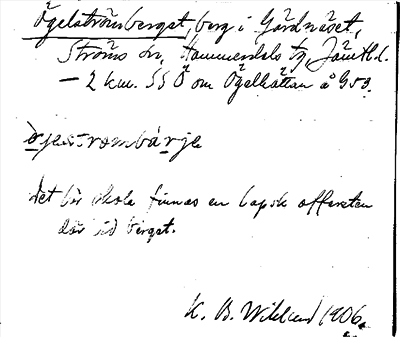 Ögelströmsberget, berg i Gärdnäset,
Ströms sn, Hammerdals tg, Jämtl. l.
— 2 km. SSÖ om Ögelhättan å G53.
Det bör skola finnas en lapsk offersten
där vid berget.
K. B. Wiklund 1906.